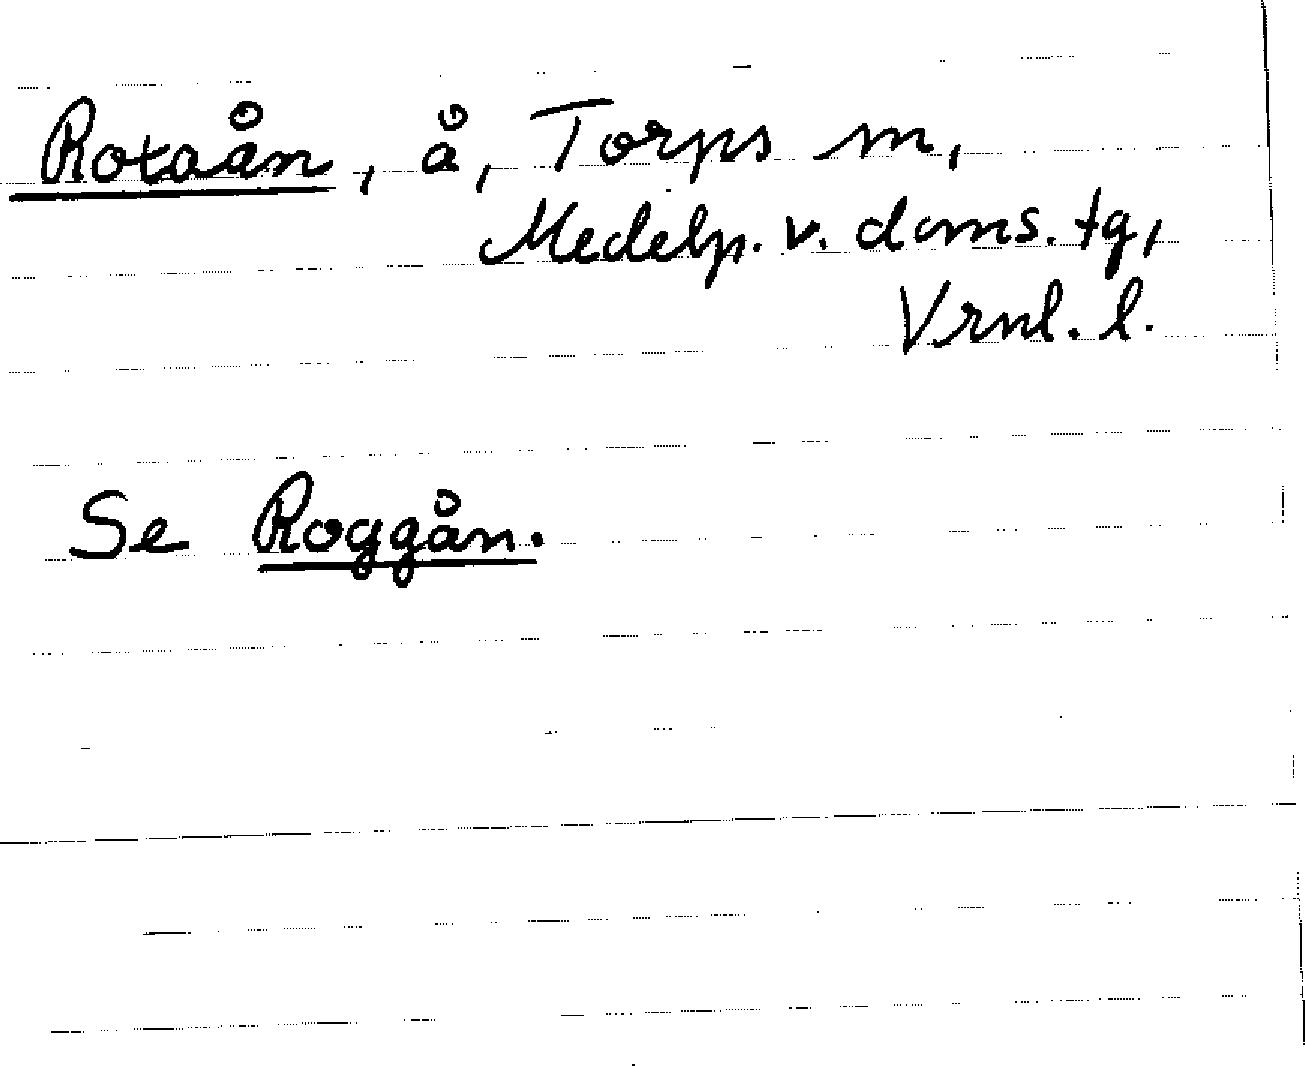 Rotaån, å, Torps sn,
Medelp. v. doms. tg,
Vrnl. l.
Se Roggån.